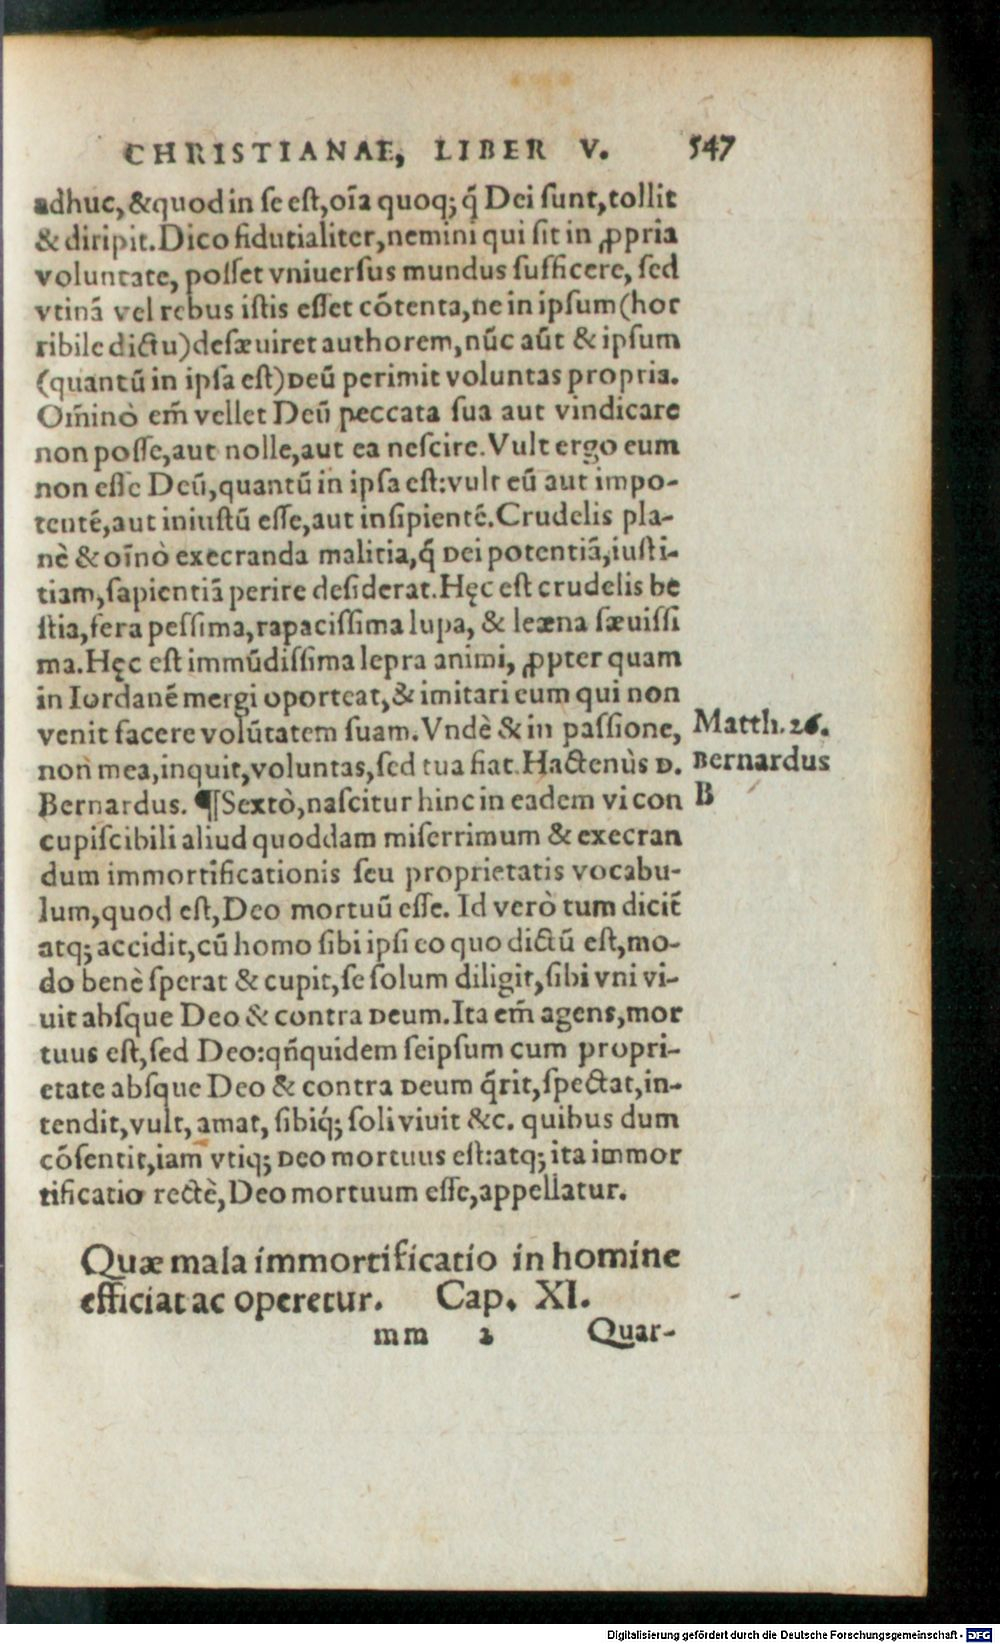 CHRISTIANAE, LIBER V. 547
adhuc, &quod in se est, oīa quoq; q̄ Dei sunt, tollit
& diripit. Dico fidutialiter, nemini qui sit in ꝓpria
voluntate, posset vniuersus mundus sufficere, sed
vtinā vel rebus istis esset cōtenta, ne in ipsum (hor
ribile dictu) desæuiret authorem, nūc aūt & ipsum
(quantū in ipsa est) Deū perimit voluntas propria.
Om̄inò em̄ vellet Deū peccata sua aut vindicare
non posse, aut nolle, aut ea nescire. Vult ergo eum
non esse Deū, quantū in ipsa est: vult eū aut impo-
tentē, aut iniustū esse, aut insipientē. Crudelis pla-
nè & oīnò execranda malitia, q̄ Dei potentiā, iusti-
tiam, sapientiā perire desiderat. Hęc est crudelis be
stia, fera pessima, rapacissima lupa, & leæna sæuissi
ma. Hęc est immūdissima lepra animi, ꝓpter quam
in Iordanē mergi oporteat, & imitari eum qui non
venit facere volūtatem suam. Vndè & in passione,
Matth. 26.
non mea, inquit, voluntas, sed tua fiat. Hactenùs D.
Bernardus
Bernardus. ¶Sextò, nascitur hinc in eadem vi con
B
cupiscibili aliud quoddam miserrimum & execran
dum immortificationis seu proprietatis vocabu-
lum, quod est, Deo mortuū esse. Id verò tum dicit̄
atq; accidit, cū homo sibi ipsi eo quo dictū est, mo-
do benè sperat & cupit, se solum diligit, sibi vni vi-
uit absque Deo & contra Deum. Ita em̄ agens, mor
tuus est, sed Deo: qn̄quidem seipsum cum propri-
etate absque Deo & contra Deum q̄rit, spectat, in-
tendit, vult, amat, sibiq́; soli viuit &c. quibus dum
cōsentit, iam vtiq; Deo mortuus est: atq; ita immor
tificatio rectè, Deo mortuum esse, appellatur.
Quæ mala immortificatio in homine
efficiat ac operetur. Cap. XI.
mm 2 Quar-
Digitalisierung gefördert durch die Deutsche Forschungsgemeinschaft - DFG